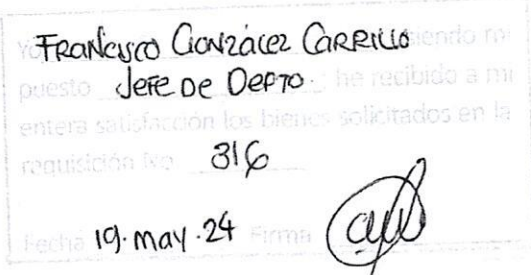 Yo, FRANCISCO GONZÁLEZ CARRILLO siendo mi
puesto JEFE DE DEPTO. he recibido a mi
entera satisfacción los bienes solicitados en la
requisición No 316
Fecha 19. may. 24 Firma